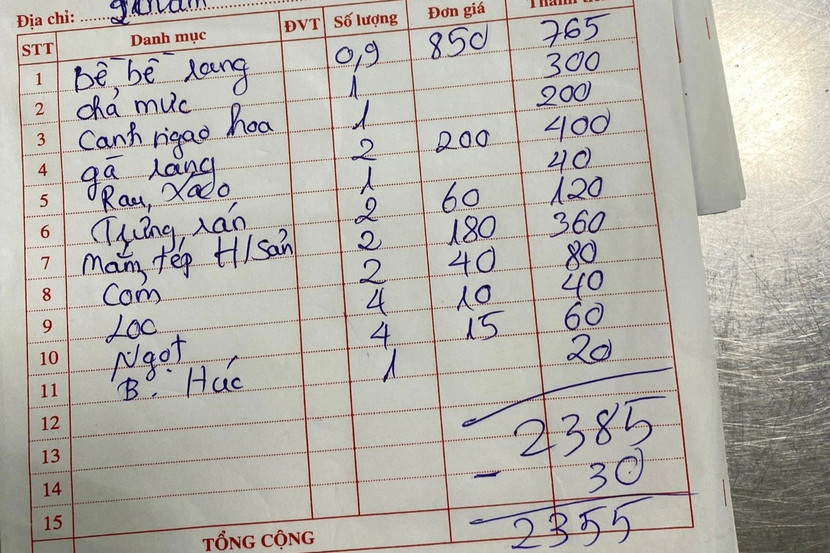 Địa chỉ:
STT Danh mục ĐVT Số lượng Đơn giá Thành tiền
1 Bề bề rang 0,9 850 765
2 chả mực 1 300
3 Canh ngao hoa 1 200
4 gà rang 2 200 400
5 Rau, xào 1 40
6 Trứng rán 2 60 120
7 Mắm tép H/sản 2 180 360
8 Cơm 2 40 80
9 Lọc 4 10 40
10 Ngọt 4 15 60
11 B. Húc 1 20
12 2385
13
14 - 30
15 2355
TỔNG CỘNG